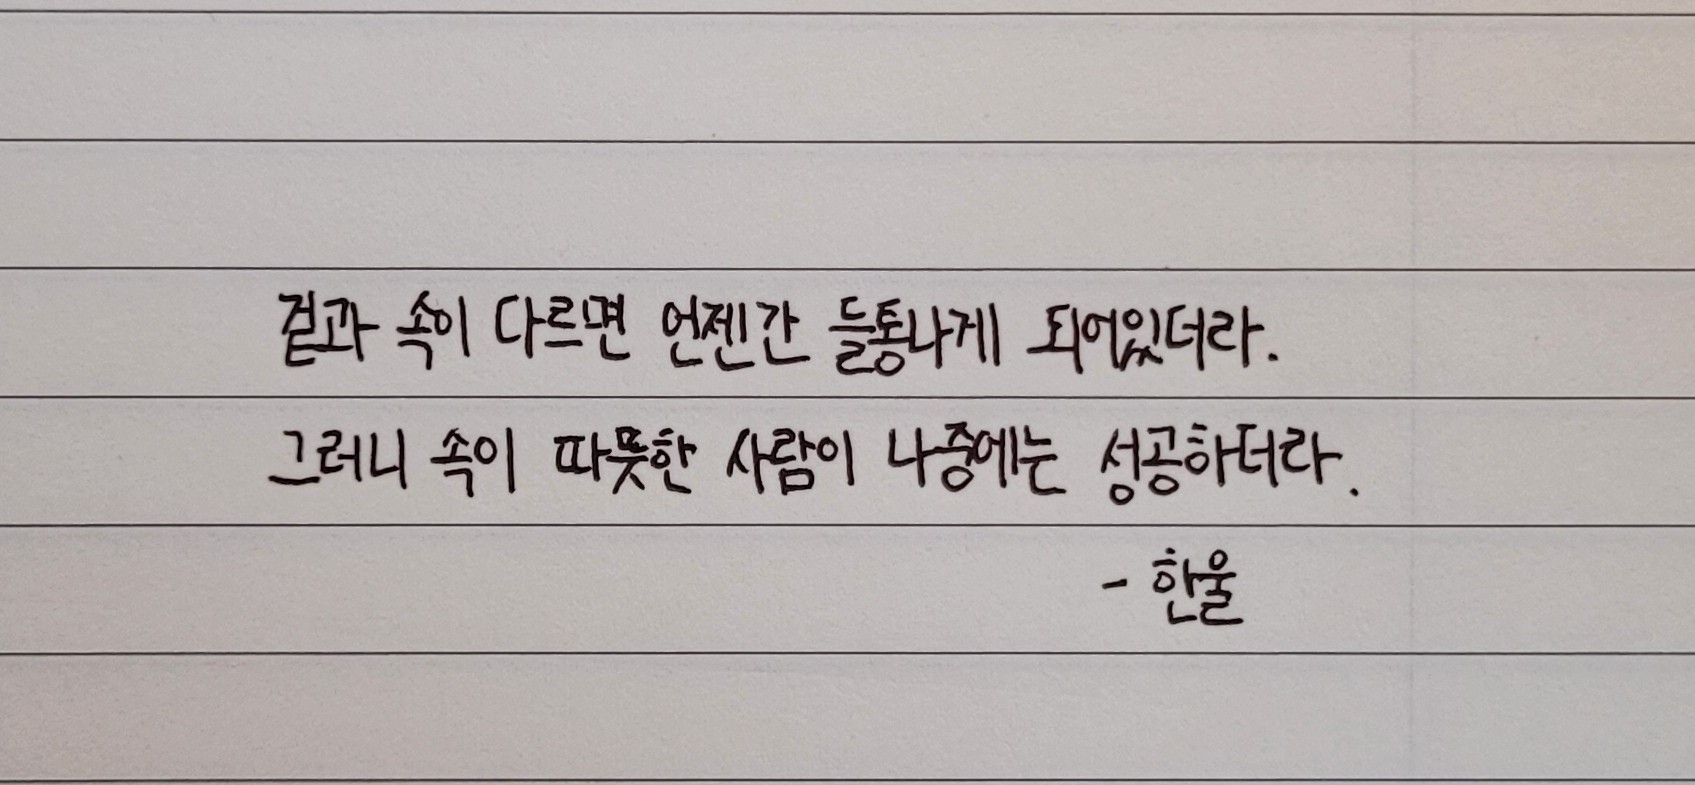 겉과 속이 다르면 언젠간 들통나게 되어있더라.
그러니 속이 따뜻한 사람이 나중에는 성공하더라.
- 한울